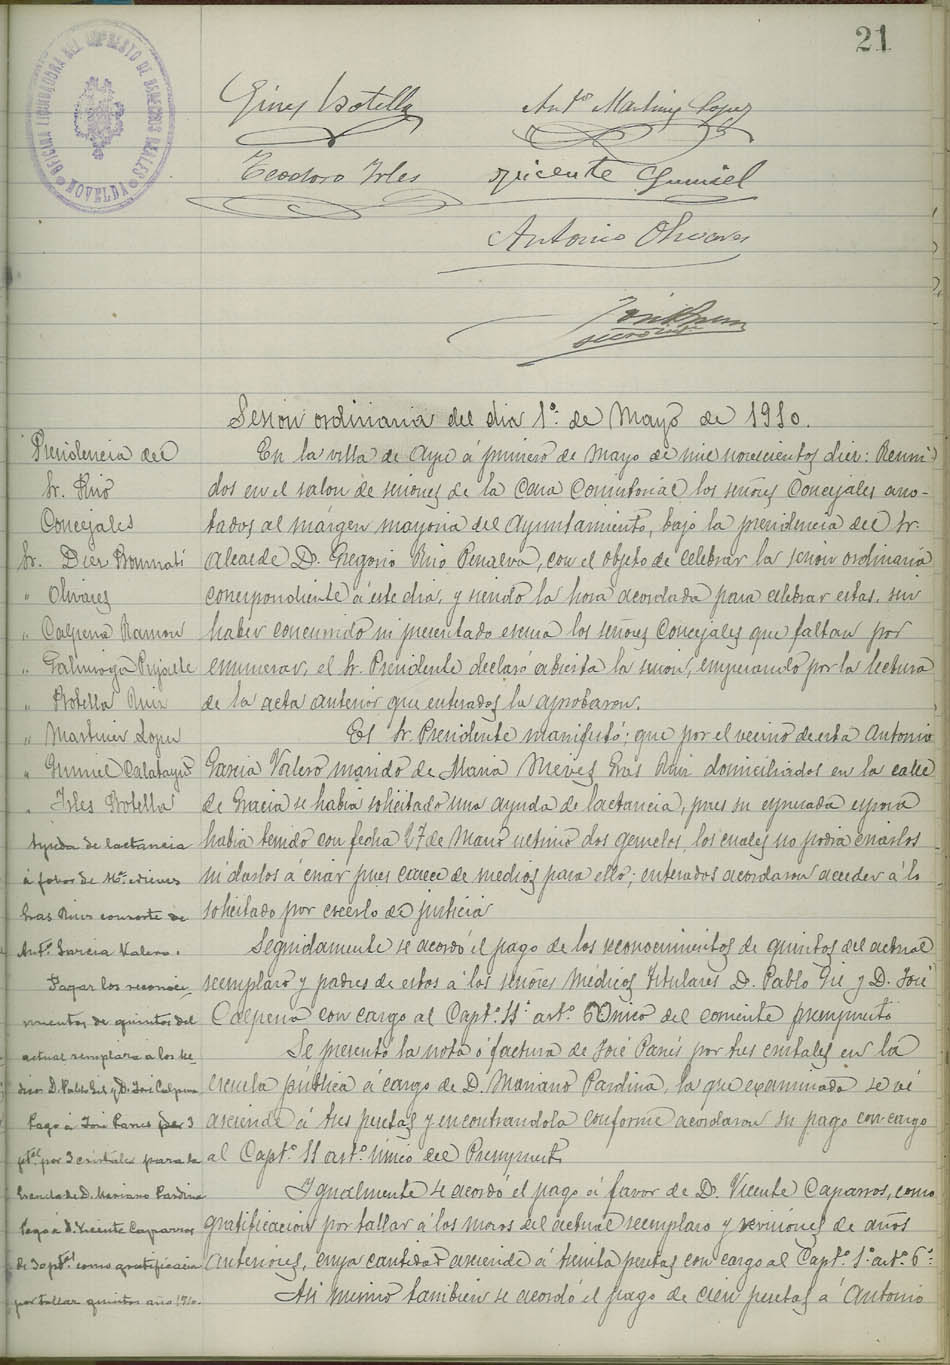 21
OFICINA LIQUIDADORA DEL IMPUESTO DE DERECHOS REALES
NOVELDA
Gines Botella
Antº Martinez Lopez
Teodoro Irles
Vicente Gumiel
Antonio Olivares
secretario
Sesión ordinaria del dia 1º de Mayo de 1910.
Presidencia del
Sr. Rizo
Concejales
Sr. Diez Bonmati
" Olivares
" Calpena Ramon
" Galinsoga
" Botella Ruiz
" Martinez Lopez
" Gumiel Calatayud
" Irles Botella
Ayuda de lactancia
á fabor de Mª Nieves
Gras Ruiz consorte de
Antº Garcia Valero.
Pagar los reconoci-
mientos de quintos del
actual remplazo a los Me-
dicos D. Pablo Gil y D. José Calpena
Pago á José Panes por 3
ptas por 3 cristales para la
Escuela de D. Mariano Pardina
Pago á D. Vicente Caparros
de 30 ptas como gratificacion
por tallar quintos año 1910.
En la villa de Aspe á primero de Mayo de mil novescientos diez: Reuni-
dos en el salon de sesiones de la Casa Consistorial los señores Concejales ano-
tados al márgen mayoria del Ayuntamiento, bajo la presidencia del Sr.
Alcalde D. Gregorio Rizo Penalva, con el objeto de celebrar la sesion ordinaria
correspondiente á este dia, y siendo la hora acordada para celebrar estas, sin
haber concurrido ni presentado escusa los señores Concejales que faltan por
enumerar, el Sr. Presidente declaró abierta la sesion, empezando por la lectura
de la acta anterior que enterados la aprobaron.
El Sr. Presidente manifestó: que por el vecino de esta Antonio
Garcia Valero marido de Maria Nieves Gras Ruiz domiciliados en la calle
de Gracia se habia solicitado una ayuda de lactancia, pues su espresada esposa
habia tenido con fecha 27 de Marzo ultimo dos gemelos, los cuales no podia criarlos
ni darlos á criar pues carece de medios para ello; enterados acordaron acceder á lo
solicitado por creerlo de justicia
Seguidamente se acordó el pago de los reconocimientos de quintos del actual
reemplazo y padres de estos á los señores Médicos Titulares D. Pablo Gil y D. José
Calpena con cargo al Captº 11 artº Único del corriente presupuesto
Se presentó la nota ó factura de José Panés por tres cristales en la
escuela pública á cargo de D. Mariano Pardina, la que examinada se vé
asciende á tres pesetas y encontrandola conforme acordaron su pago con cargo
al Captº 11 artº único del Presupuesto
Igualmente se acordó el pago á favor de D. Vicente Caparros, como
gratificación por tallar á los mozos del actual reemplazo y revisiones de años
anteriores, cuya cantidad asciende á treinta pesetas con cargo al Captº 1º artº 6º
Asi mismo tambien se acordó el pago de cien pesetas á Antonio